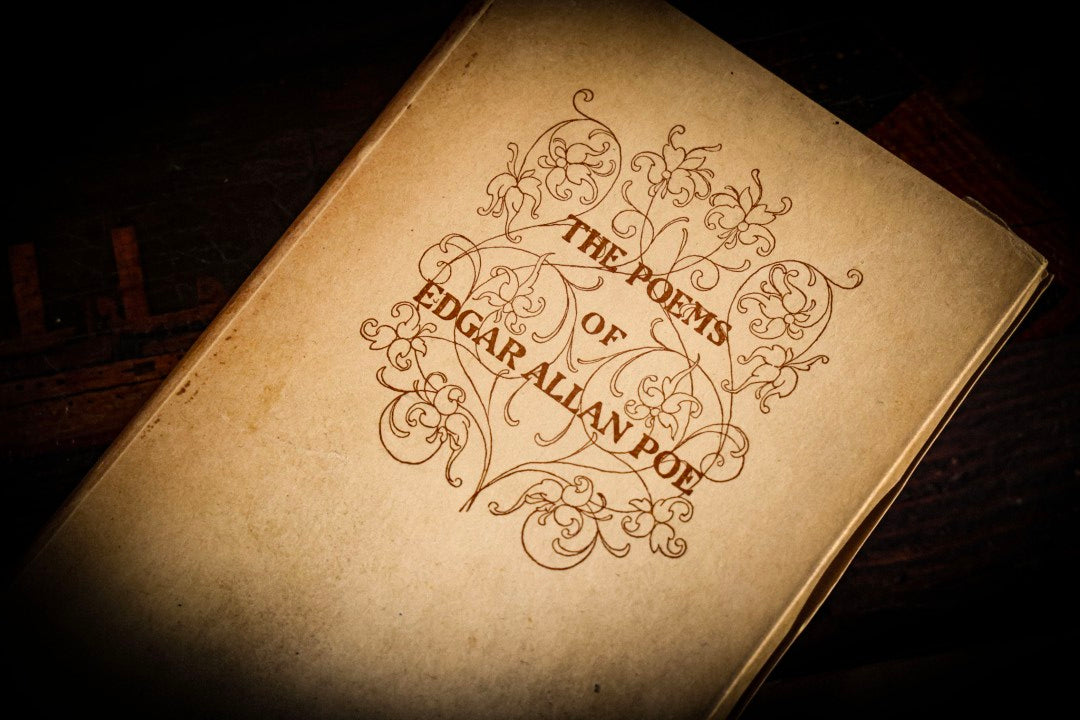 THE POEMS
OF
EDGAR ALLAN POE